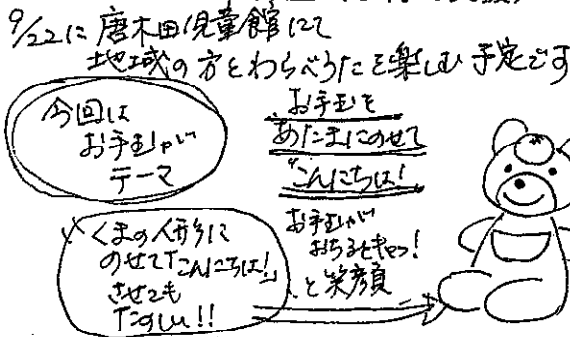 9/22に 唐木田児童館にて
地域の方とわらべうたを楽しむ予定です
今回は
お手玉が
テーマ
お手玉を
あたまにのせて
"こんにちは!
お手玉が
おちるとキャッ!
と笑顔
くまの人形に
のせて「こんにちは!」
させても
たのしい!!